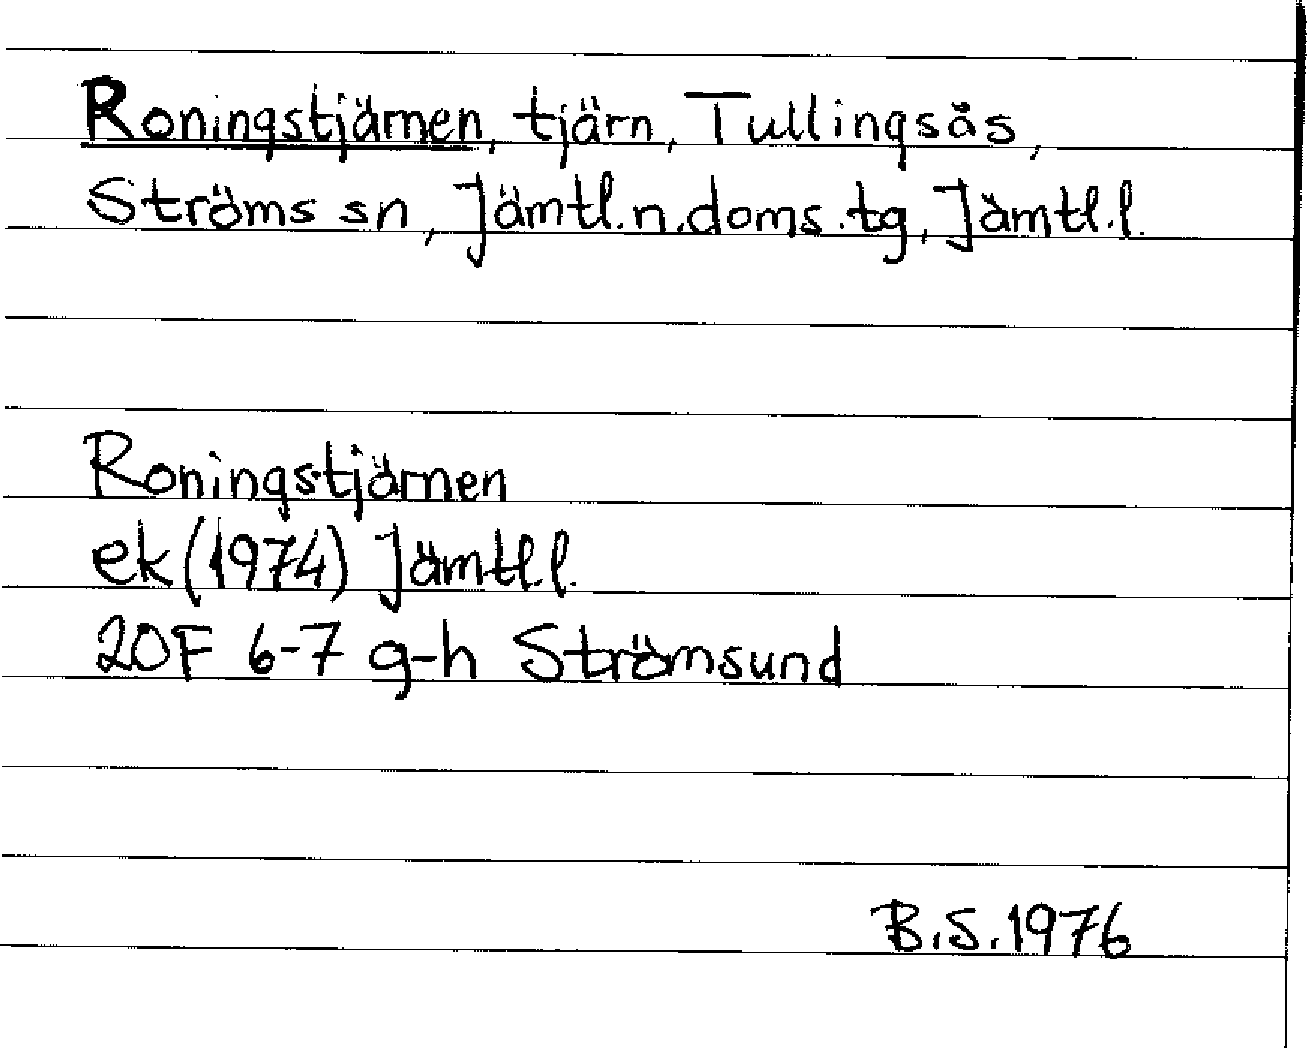 Roningstjärnen, tjärn, Tullingsås,
Ströms sn, Jämtl.n.doms.tg, Jämtl.l.
Roningstjärnen
ek (1974) Jämtl.l.
20F 6-7 g-h Strömsund
B.S. 1976